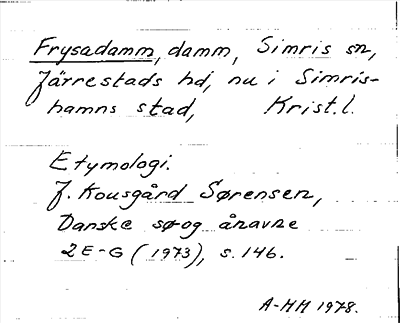 Frysadamm, damm, Simris sn,
Järrestads hd, nu i Simris-
hamns stad, Krist.l.
Etymologi.
J. Kousgård Sørensen,
Danske sø-og ånavne
2 E-G (1973), s. 146.
A-MH 1978.